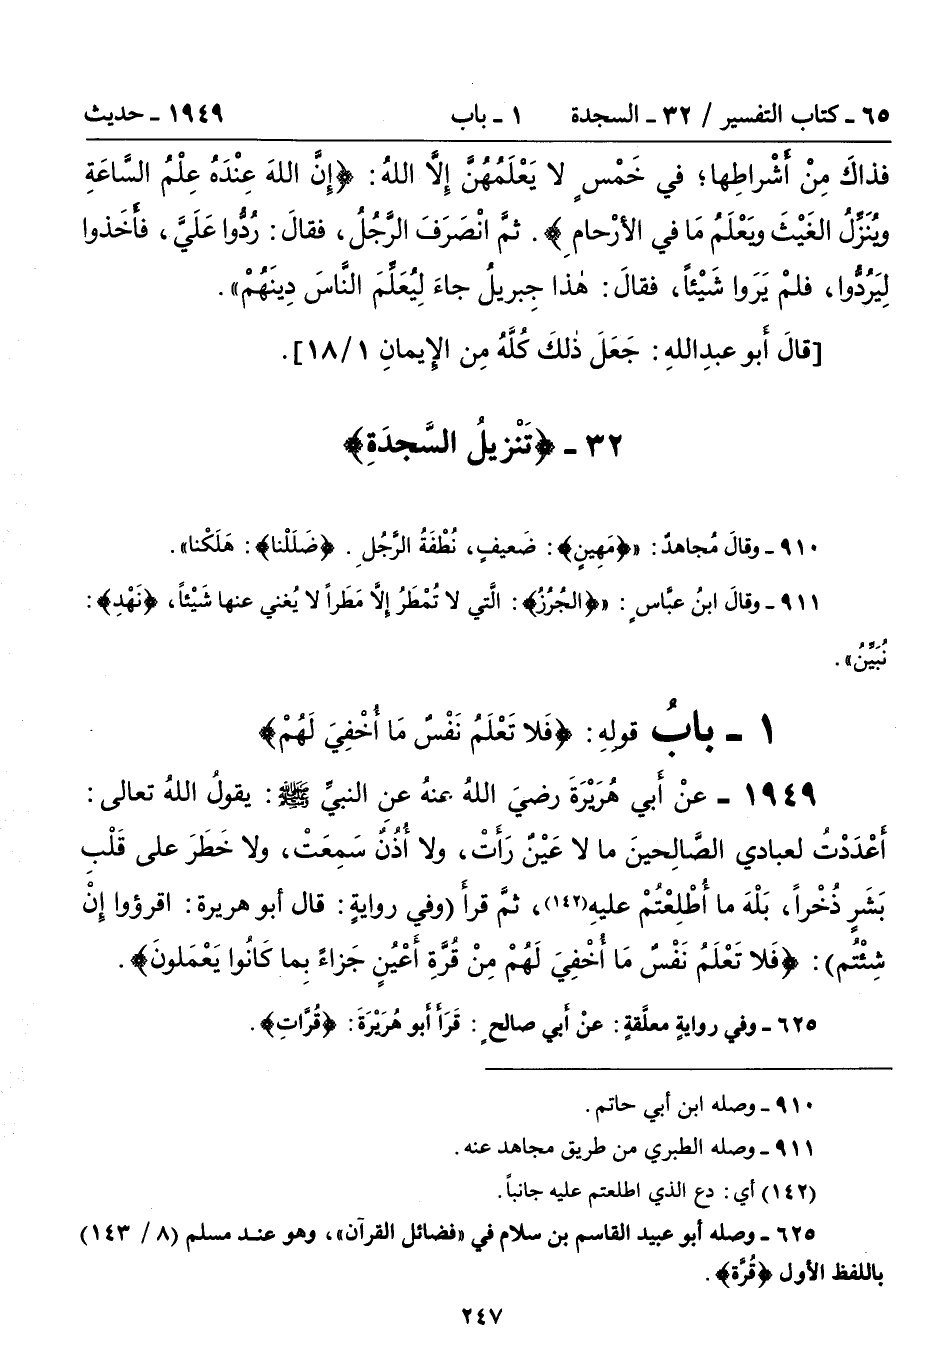 ٦٥ ـ كتاب التفسير / ٣٢ ـ السجدة ١ ـ باب ١٩٤٩ ـ حديث
فذاكَ مِنْ أَشْراطِها؛ في خَمْسٍ لا يَعْلَمُهُنَّ إِلَّا اللهُ: ﴿إِنَّ اللهَ عِنْدَهُ عِلْمُ السَّاعَةِ
ويُنَزِّلُ الغَيْثَ ويَعْلَمُ مَا في الأرْحامِ﴾. ثمَّ انْصَرَفَ الرَّجُلُ، فقالَ: رُدُّوا عَلَيَّ، فأَخَذوا
لِيَرُدُّوا، فلمْ يَرَوا شَيْئاً، فقالَ: هٰذا جِبريلُ جاءَ لِيُعَلِّمَ النَّاسَ دِينَهُمْ».
[قالَ أَبو عبدِاللهِ: جَعَلَ ذٰلكَ كُلَّهُ مِن الإِيمانِ ١/ ١٨].
٣٢ ـ ﴿تَنْزيلُ السَّجدَةِ﴾
٩١٠ ـ وقالَ مُجاهدٌ: «﴿مَهِينٍ﴾: ضَعيفٍ، نُطْفَةُ الرَّجُلِ. ﴿ضَلَلْنا﴾: هَلَكْنا».
٩١١ ـ وقالَ ابنُ عبَّاسٍ: «﴿الجُرُزُ﴾: الَّتي لا تُمْطَرُ إِلَّا مَطَراً لا يُغني عنها شَيْئاً، ﴿نَهْدِ﴾:
نُبَيِّنُ».
١ ـ بابُ قولِهِ: ﴿فَلا تَعْلَمُ نَفْسٌ مَا أُخْفِيَ لَهُمْ﴾
١٩٤٩ ـ عنْ أَبي هُرَيْرَةَ رضيَ اللهُ عنهُ عنِ النبيِّ ﷺ: يقولُ اللهُ تعالى:
أَعْدَدْتُ لعبادي الصَّالِحينَ ما لا عَيْنٌ رَأَتْ، ولا أُذُنٌ سَمِعَتْ، ولا خَطَرَ على قَلْبِ
بَشَرٍ ذُخْراً، بَلْهَ ما أُطْلِعْتُمْ عليهِ(١٤٢)، ثمَّ قرأَ (وفي روايةٍ: قال أبو هريرة: اقرؤوا إنْ
شِئْتُم): ﴿فَلا تَعْلَمُ نَفْسٌ مَا أُخْفِيَ لَهُمْ مِنْ قُرَّةِ أَعْيُنٍ جَزاءً بما كَانُوا يَعْمَلونَ﴾.
٦٢٥ ـ وفي روايةٍ معلَّقةٍ: عنْ أَبي صالحٍ: قَرَأَ أَبو هُرَيْرَةَ: ﴿قُرَّاتِ﴾.
٩١٠ ـ وصله ابن أبي حاتم.
٩١١ ـ وصله الطبري من طريق مجاهد عنه.
(١٤٢) أي: دع الذي اطلعتم عليه جانباً.
٦٢٥ ـ وصله أبو عبيد القاسم بن سلام في «فضائل القرآن»، وهو عند مسلم (٨ / ١٤٣)
باللفظ الأول ﴿قُرَّة﴾.
٢٤٧